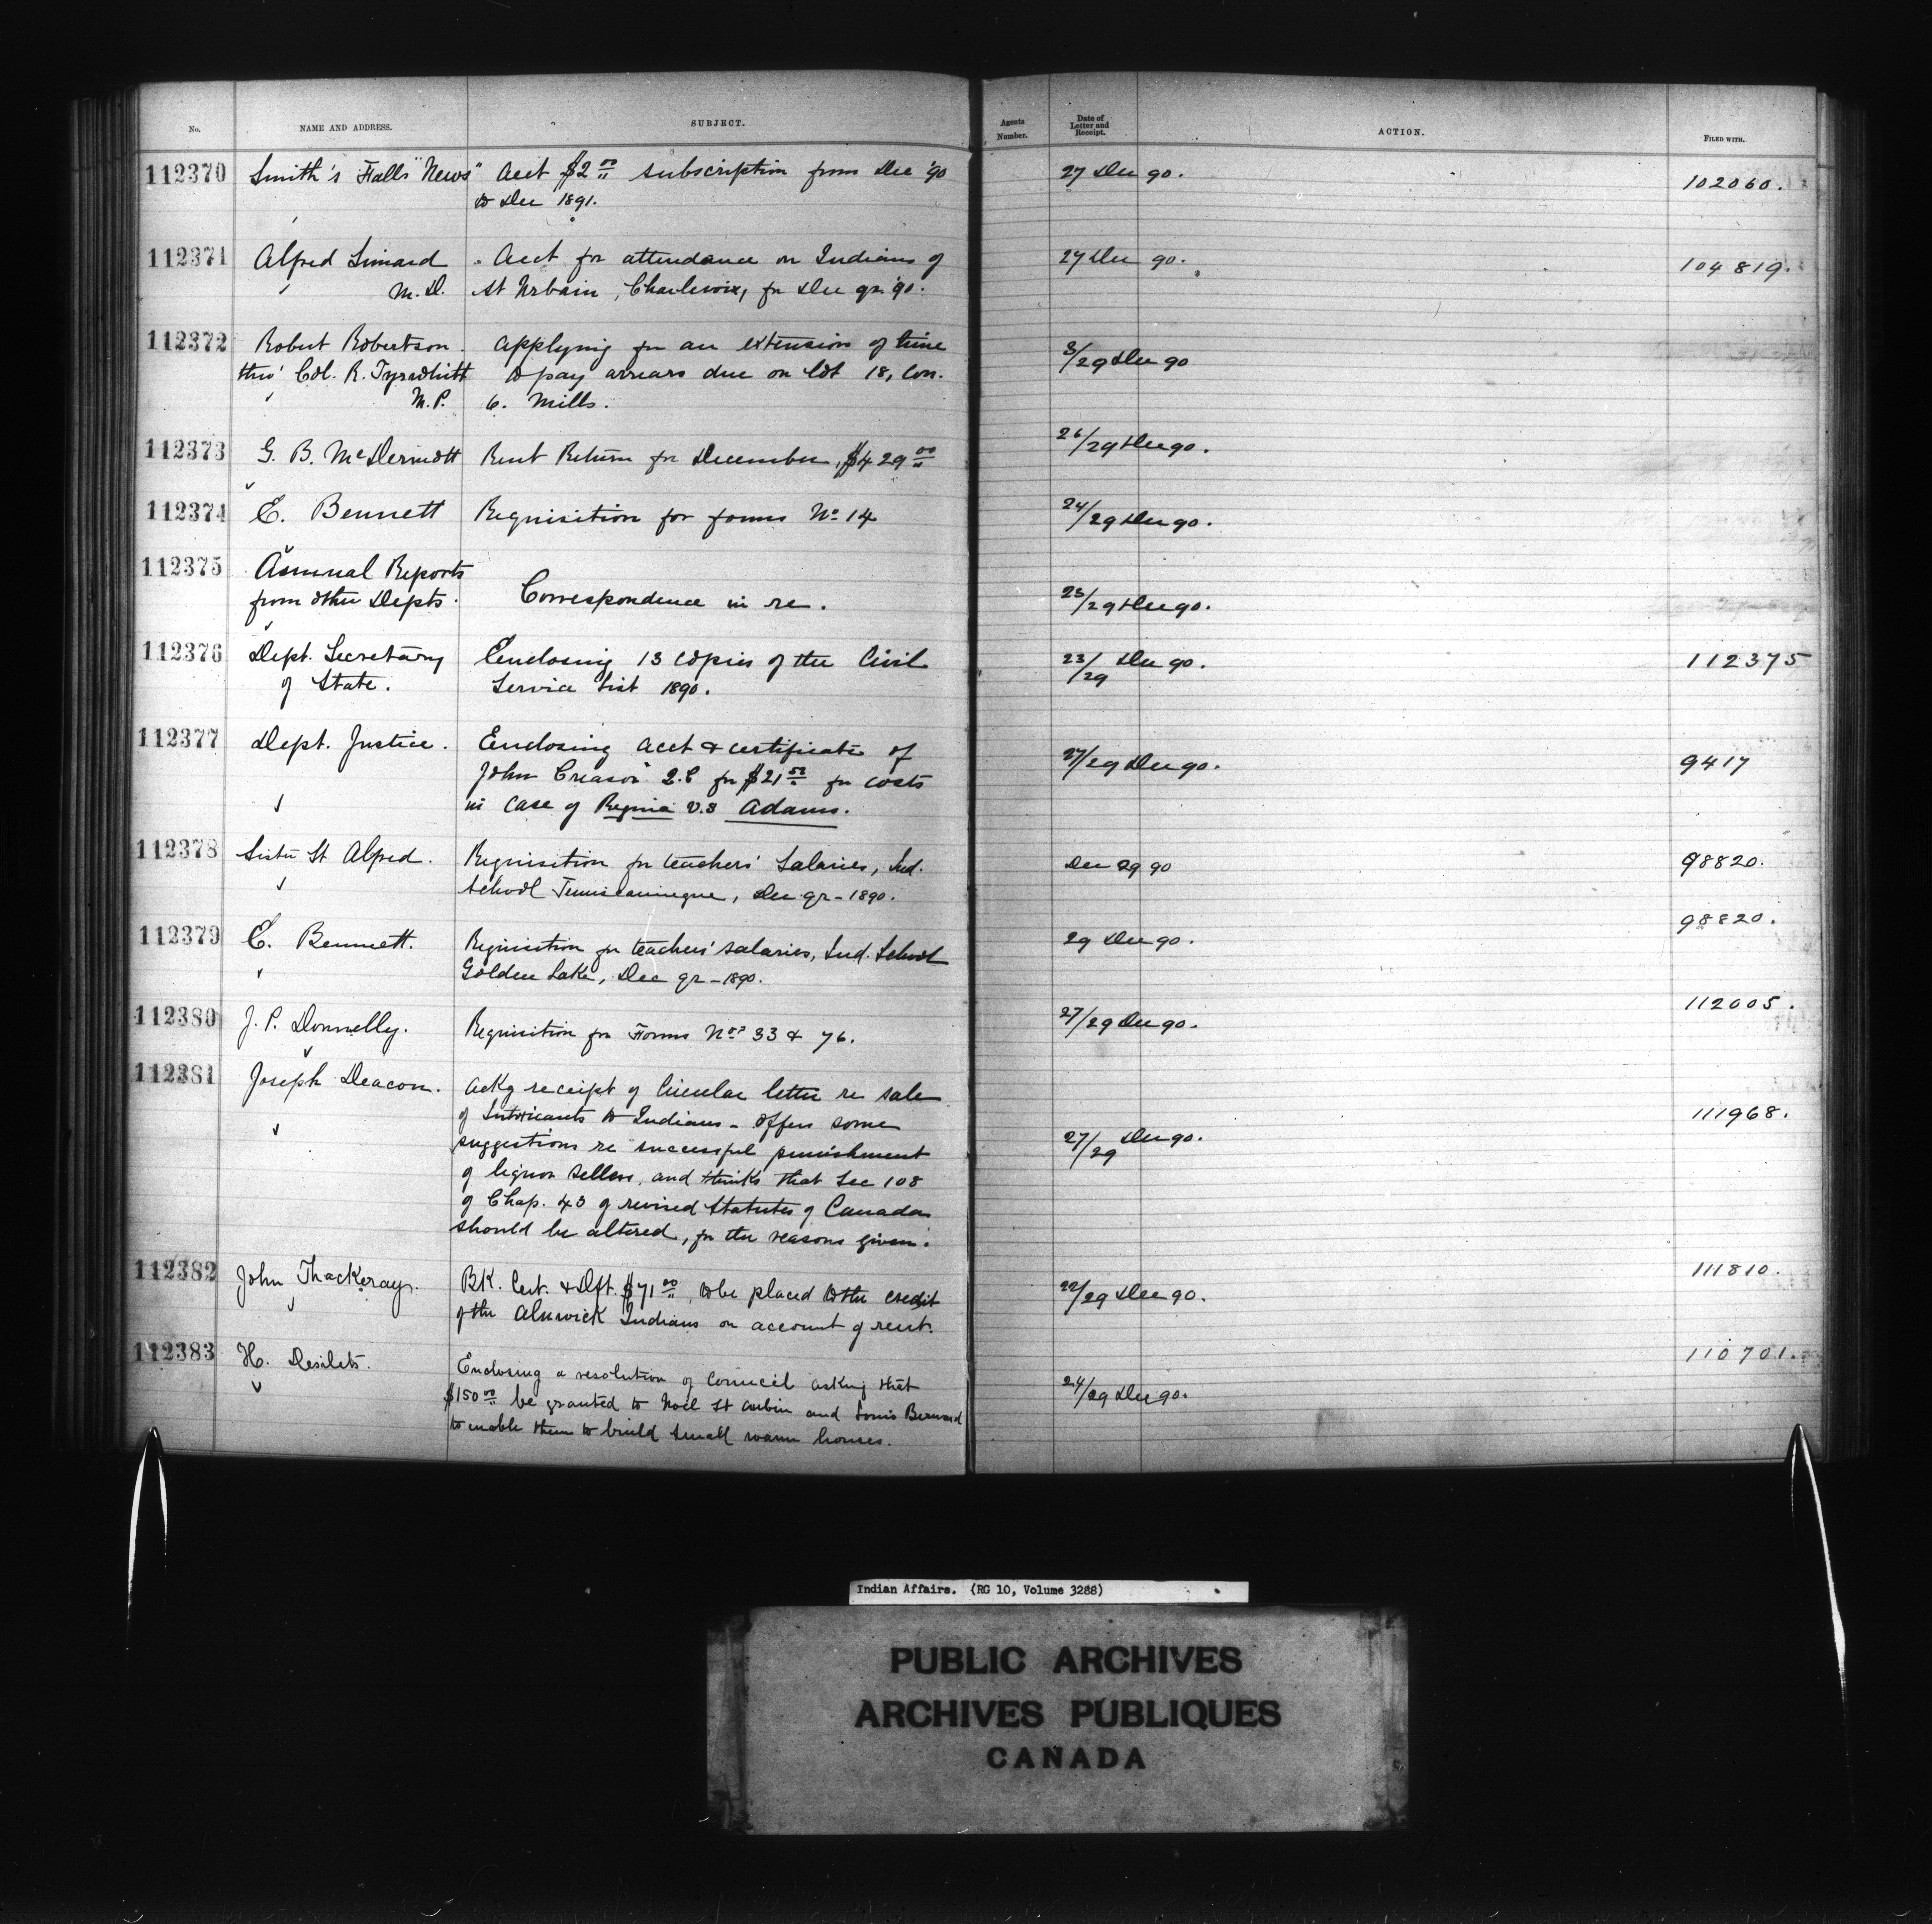 No.
NAME AND ADDRESS.
SUBJECT.
Agents Number.
Date of Letter and Receipt.
ACTION.
FILED WITH.
112370 Smith's Falls "News" Acct $2.00 subscription from Dec '90 27 Dec 90. 102060.
to Dec 1891.
112371 Alfred Simard Acct for attendance on Indians of 27 Dec 90. 104819.
M.D. St Urbain, Charlevoix, for Dec qr. '90.
112372 Robert Robertson. Applying for an extension of time 3/29 Dec 90
thro' Col. R. Tyrwhitt to pay arrears due on lot 18, Con.
M.P. 6. Mills.
112373 G. B. McDermott Rent Return for December, $429.00 26/29 Dec 90.
112374 E. Bennett Requisition for forms No 14 24/29 Dec 90.
112375 Annual Reports
from other Depts. Correspondence in re. 23/29 Dec 90.
112376 Dept. Secretary Enclosing 13 copies of the Civil 23/29 Dec 90. 112375
of State. Service List 1890.
112377 Dept. Justice. Enclosing acct & certificate of 27/29 Dec 90. 9417
John Creasor Q.C for $21.50 for costs
in case of Regina v.s Adams.
112378 Sister St Alfred. Requisition for teachers' Salaries, Ind. Dec 29 90 98820.
School Temiscamingue, Dec qr - 1890.
112379 E. Bennett. Requisition for teachers' salaries, Ind. School 29 Dec 90. 98820.
Golden Lake, Dec qr - 1890.
112380 J. P. Donnelly. Requisition for Forms Nos 33 & 76. 27/29 Dec 90. 112005.
112381 Joseph Deacon. Ackg receipt of Circular letter re sale 27/29 Dec 90. 111968.
of Intoxicants to Indians - Offers some
suggestions re successful punishment
of liquor sellers, and thinks that Sec 108
of Chap. 43 of revised Statutes of Canada
should be altered, for the reasons given.
112382 John Thackeray. BK. Cert. & Dft. $71.00, to be placed to the credit 22/29 Dec 90. 111810.
of the Alnwick Indians on account of rent.
112383 H. Desilets. Enclosing a resolution of Council asking that 24/29 Dec 90. 110701.
$150.00 be granted to Noël St Aubin and Louis Bernard
to enable them to build small warm houses.
Indian Affairs. (RG 10, Volume 3288)
PUBLIC ARCHIVES
ARCHIVES PUBLIQUES
CANADA